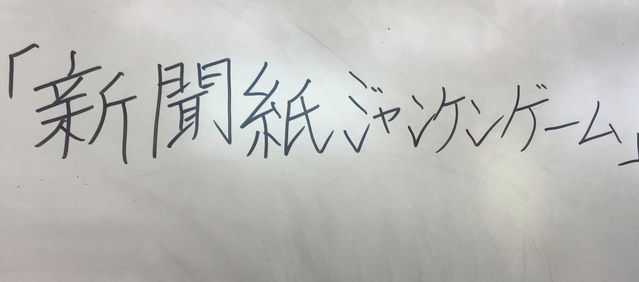 「新聞紙ジャンケンゲーム」